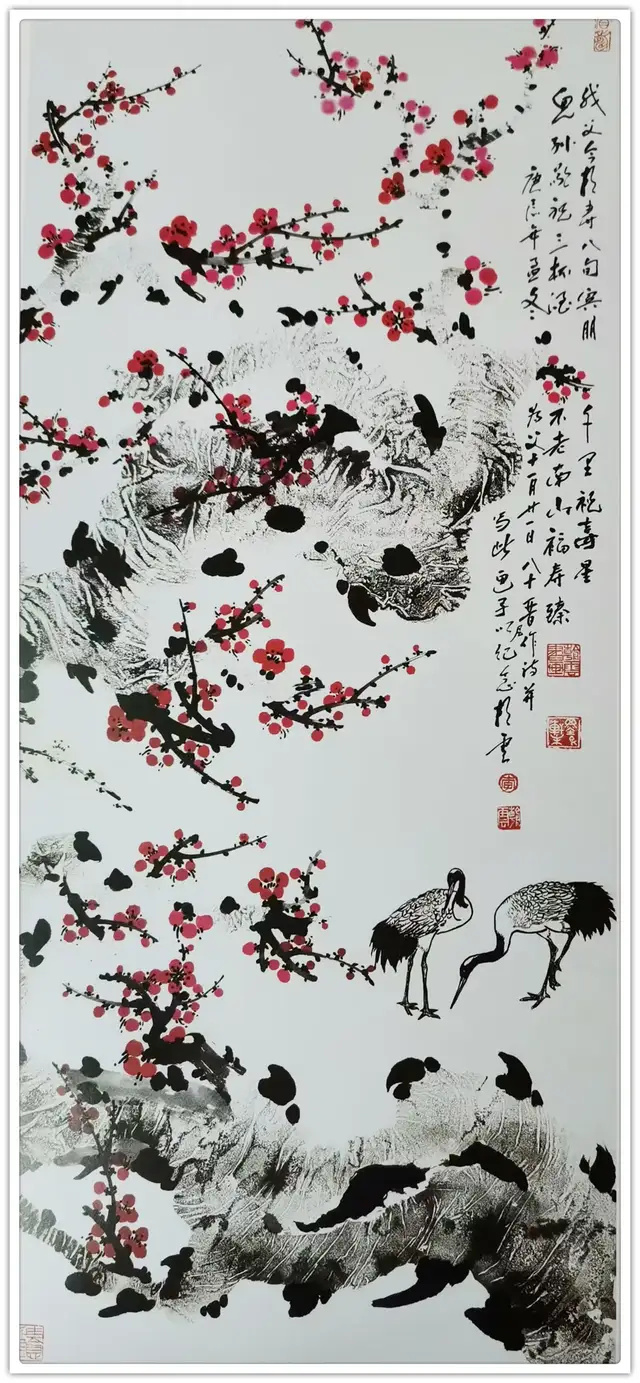 我父今於寿八旬宾朋千里祝壽星
儿孙敬祝三杯酒不老南山福寿臻
庚辰年孟冬为父十月廿一日八十作诗并
写此画予以纪念於云